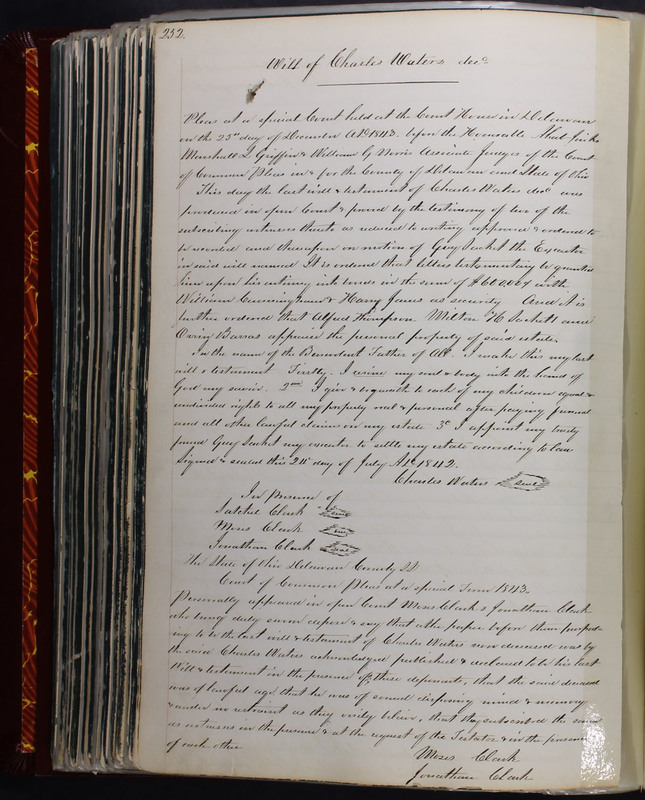 232.
Will of Charles Waters decd
Pleas at a special Court held at the Court House in Delaware
on the 23d day of December AD 1843. before the Honorable
Marshall L Griffin & William G Norris Associate Judges of the Court
of Common Pleas in & for the County of Delaware and State of Ohio
This day the last will & testament of Charles Waters decd was
produced in open Court & proved by the testimony of two of the
subscribing witnesses thereto as reduced to writing approved & ordered to
be recorded and thereupon on motion of Guy Sacket the Executor
in said will named It is ordered that letters testamentary be granted
him upon his entering into bonds in the sum of $600,00 with
William Cunningham & Harry James as security And it is
further ordered that Alfred Thompson Milton H Sackett and
Orrin Barras appraise the personal property of said estate.
In the name of the Benevolent Father of All I make this my last
will & testament Firstly. I resine my soul & body into the hands of
God my savior. 2nd I give & bequeath to each of my children equal &
undivided rights to all my property real & personal after paying funeral
and all other lawful claims on my estate 3d I appoint my trusty
friend Guy Sacket my executor to settle my estate according to law
Signed & sealed this day of July AD 1842.
Charles Waters seal
In Presence of
Satchel Clark seal
Moses Clark seal
Jonathan Clark seal
The State of Ohio Delaware County SS
Court of Common Pleas at a special Term 1843.
Personally appeared in open Court Moses Clark & Jonathan Clark
who being duly sworn depose & say that the paper before them purport-
ing to be the last will & testament of Charles Waters now deceased was by
the said Charles Waters acknowledged published & declared to be his last
Will & testament in the presence of these deponents, that the said deceased
was of lawful age that he was of sound disposing mind & memory
& under no restraint as they verily believe, that they subscribed the same
as witnesses in the presence & at the request of the Testator & in the presence
of each other
Moses Clark
Jonathan Clark